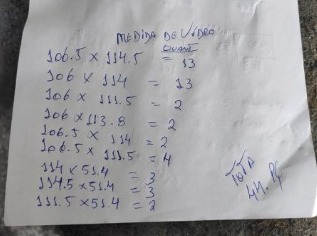 MEDIDA DE VIDRO
QUANT
106.5 X 114.5 = 13
106 X 114 = 13
106 X 111.5 = 2
106 X 113.8 = 2
106.5 X 114 = 2
106.5 X 111.5 = 4
114 X 51.4 = 3
114.5 X 51.4 = 3
111.5 X 51.4 = 2
44.